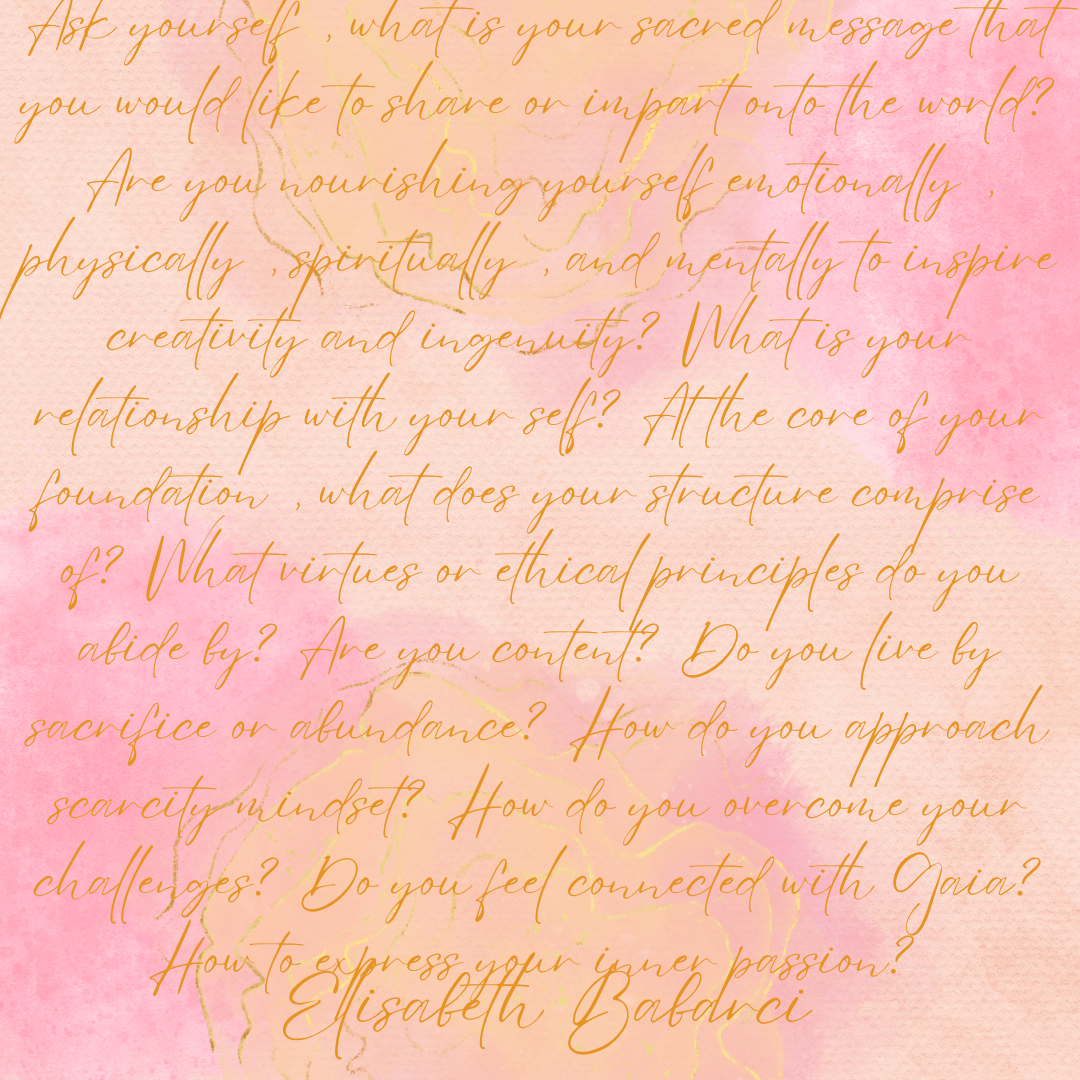 Ask yourself , what is your sacred message that
you would like to share or impart onto the world?
Are you nourishing yourself emotionally ,
physically , spiritually , and mentally to inspire
creativity and ingenuity? What is your
relationship with your self? At the core of your
foundation , what does your structure comprise
of? What virtues or ethical principles do you
abide by? Are you content? Do you live by
sacrifice or abundance? How do you approach
scarcity mindset? How do you overcome your
challenges? Do you feel connected with Gaia?
How to express your inner passion?
Ellisabeth